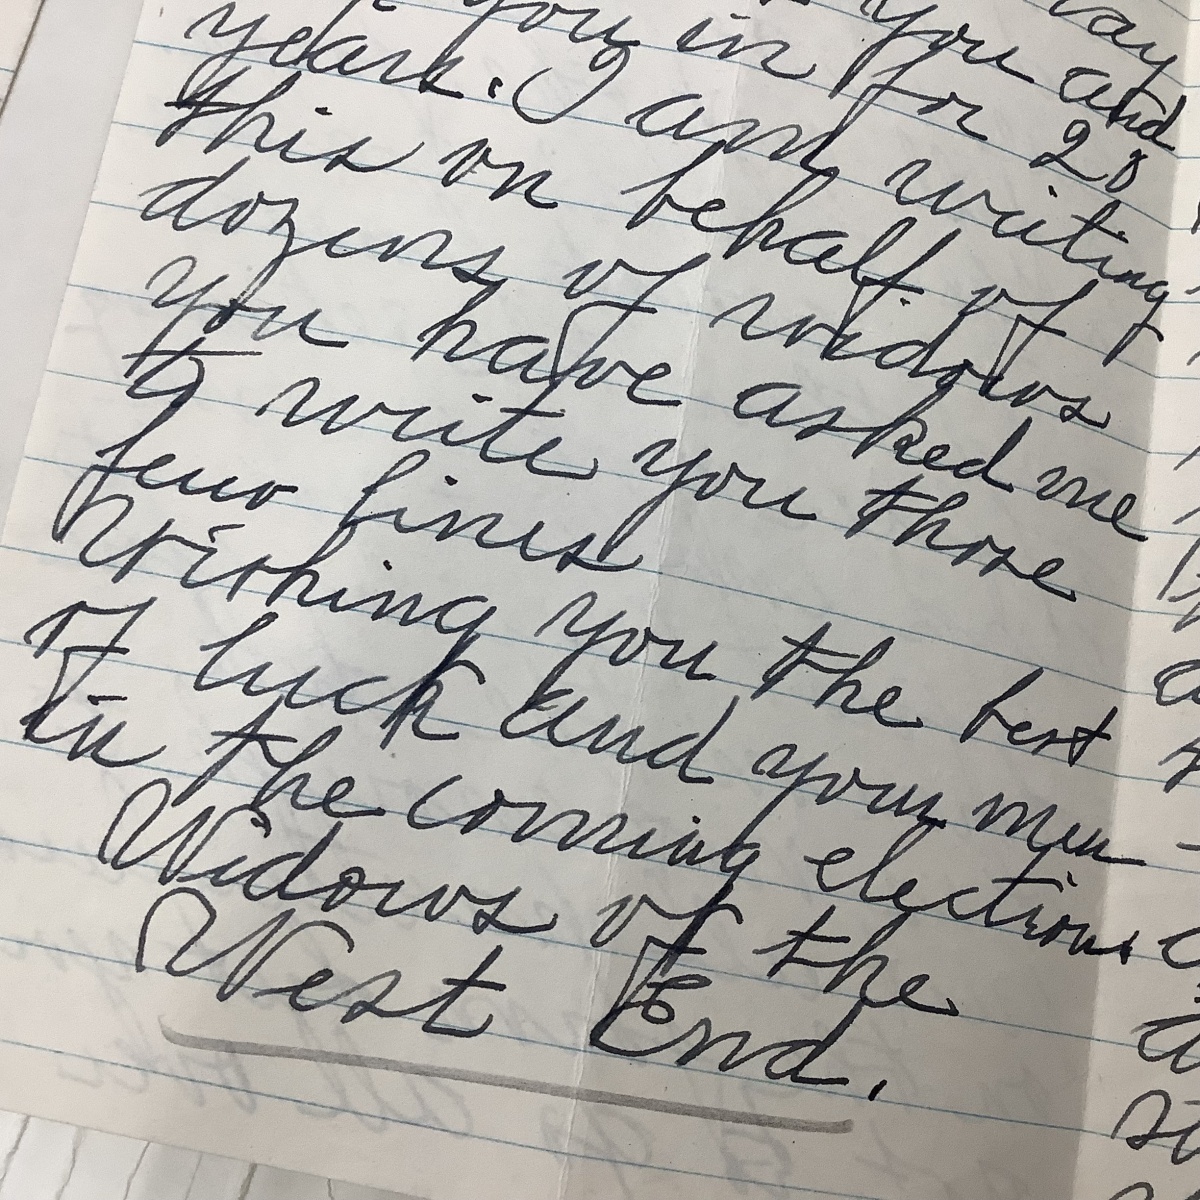 day
you and
you in for 28
years. I am writing
this on behalf of
dozens of widows
you have asked me
to write you those
few lines
Wishing you the best
of luck and your men
in the coming elections
Widows of the
West End.